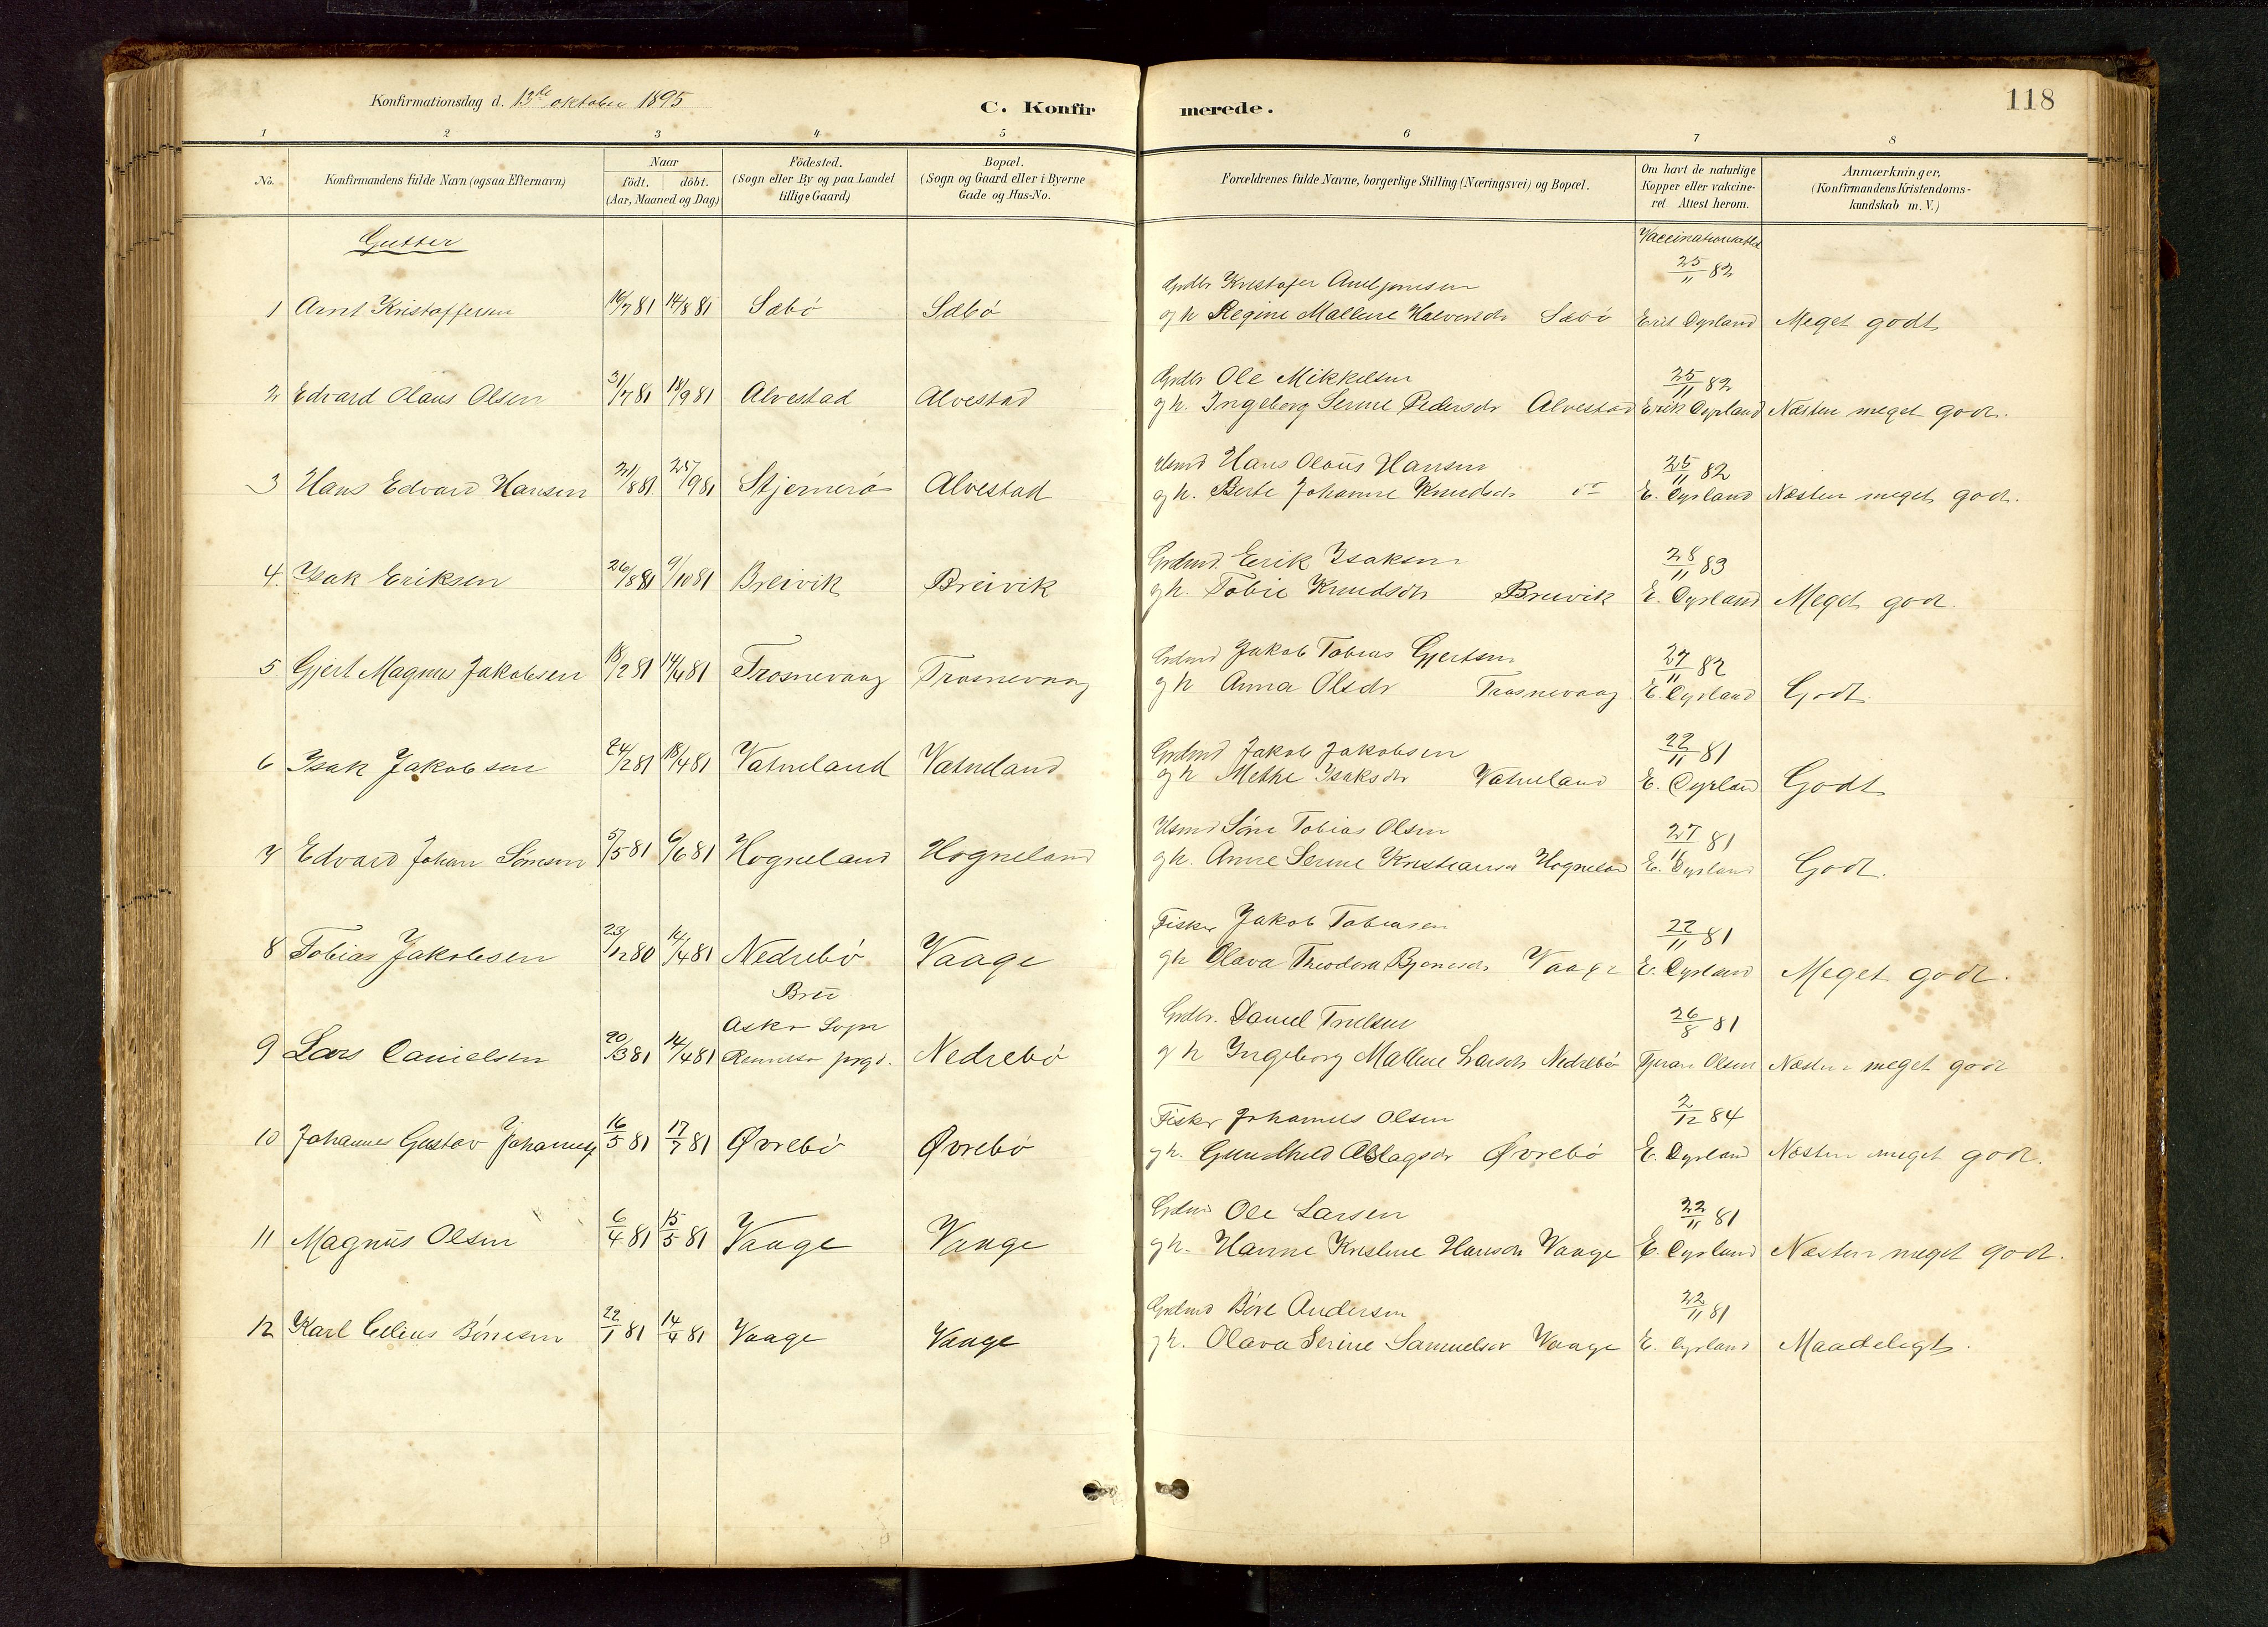 Konfirmationsdag d. 13de oktober 1895
C. Konfir merede.
118
1 2 3 4 5 6 7 8
No.
Konfirmandens fulde Navn (ogsaa Efternavn)
Naar
födt. döbt.
(Aar, Maaned og Dag)
Födested.
(Sogn eller By og paa Landet
tillige Gaard)
Bopæl.
(Sogn og Gaard eller i Byerne
Gade og Hus-No.
Forældrenes fulde Navne, borgerlige Stilling (Næringsvei) og Bopæl.
Om havt de naturlige
Kopper eller vakcine-
ret. Attest herom.
Anmærkninger,
(Konfirmandens Kristendoms-
kundskab m. V.)
Gutter
Grdbr Kristofer
25/11 82
1 Arnt Kristoffersen 16/7 81 14/8 81 Sæbö Sæbö gh Regine Mallene Halvorsdr Sæbö Erik Dyrland Meget godt
Grdbr Ole Mikkelsen 25/11 82
2 Edvard Olaus Olsen 31/7 81 18/9 81 Alvestad Alvestad gh. Ingeborg Serine Pedersdr Alvestad Erik Dyrland Næsten meget godt.
Husmd Hans Olaus Hansen 25/11 82
3 Hans Edvard Hansen 21/8 81 25/9 81 Stjernerö Alvestad gh. Berte Johanne Knudsdr do E. Dyrland Næsten meget godt.
Grdmd. Erik Isaksen 28/11 83
4. Isak Eriksen 26/8 81 9/10 81 Breivik Breivik gh. Tobie Knudsdr Breivik E. Dyrland Meget godt.
Grdmd Jakob Tobias Gjertsen 27/11 82
5. Gjert Magnus Jakobsen 18/2 81 14/4 81 Trosnevaag Trosnevaag gh Anna Olsdr Trosnevaag E. Dyrland Godt.
Grdmd Jakob Jakobsen 22/11 81
6 Isak Jakobsen 24/2 81 18/4 81 Vatneland Vatneland gh Methe Isaksdr Vatneland E. Dyrland Godt
Husmd Söne Tobias Olsen 27/11 81
7 Edvard Johan Sönesen 5/5 81 6/6 81 Hogneland Hogneland gh. Anne Serine Hogneland E. Dyrland Godt.
Fisker Jakob Tobiasen 22/11 81
8 Tobias Jakobsen 23/12 80 14/4 81 Nedrebö Vaage gh Olava Theodora Vaage E. Dyrland Meget godt.
Bru
Askö Sogn
Grdbr. Daniel Trulsen 26/8 81
9 Lars Danielsen 20/3 81 14/4 81 Rennesø prgd. Nedrebö gh Ingeborg Mallene Larsdr Nedrebö Olsen Næsten meget godt
Fisker Johannes Olsen 2/12 84
10 Johannes Gustav 16/5 81 17/7 81 Øvrebö Øvrebö gh. Gunhild Aslagsdr Øvrebö E. Dyrland Næsten meget godt.
Grdmd Ole Larsen 22/11 81
11 Magnus Olsen 6/4 81 15/5 81 Vaage Vaage gh. Hanne Kristine Hansdr Vaage E. Dyrland Næsten meget godt.
Grdmd Böre Andersen 22/11 81
12 Karl Celius Börresen 22/1 81 14/4 81 Vaage Vaage gh. Olava Serine Samuelsdr Vaage E. Dyrland Maadeligt.